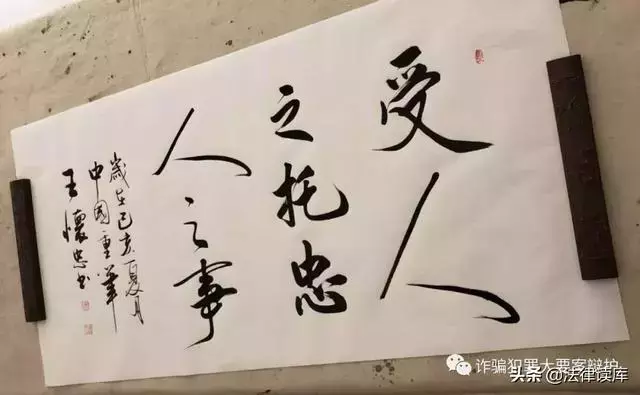 受人
之托忠
人之事
歲在己亥夏月
中國重華
王懷忠书
诈骗犯罪大要案辩护
头条@法律读库